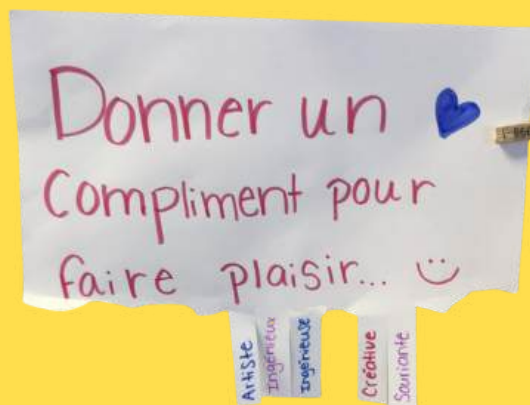 Donner un
Compliment pour
faire plaisir...
Artiste
Ingénieux
Ingénieuse
Créative
Souriante